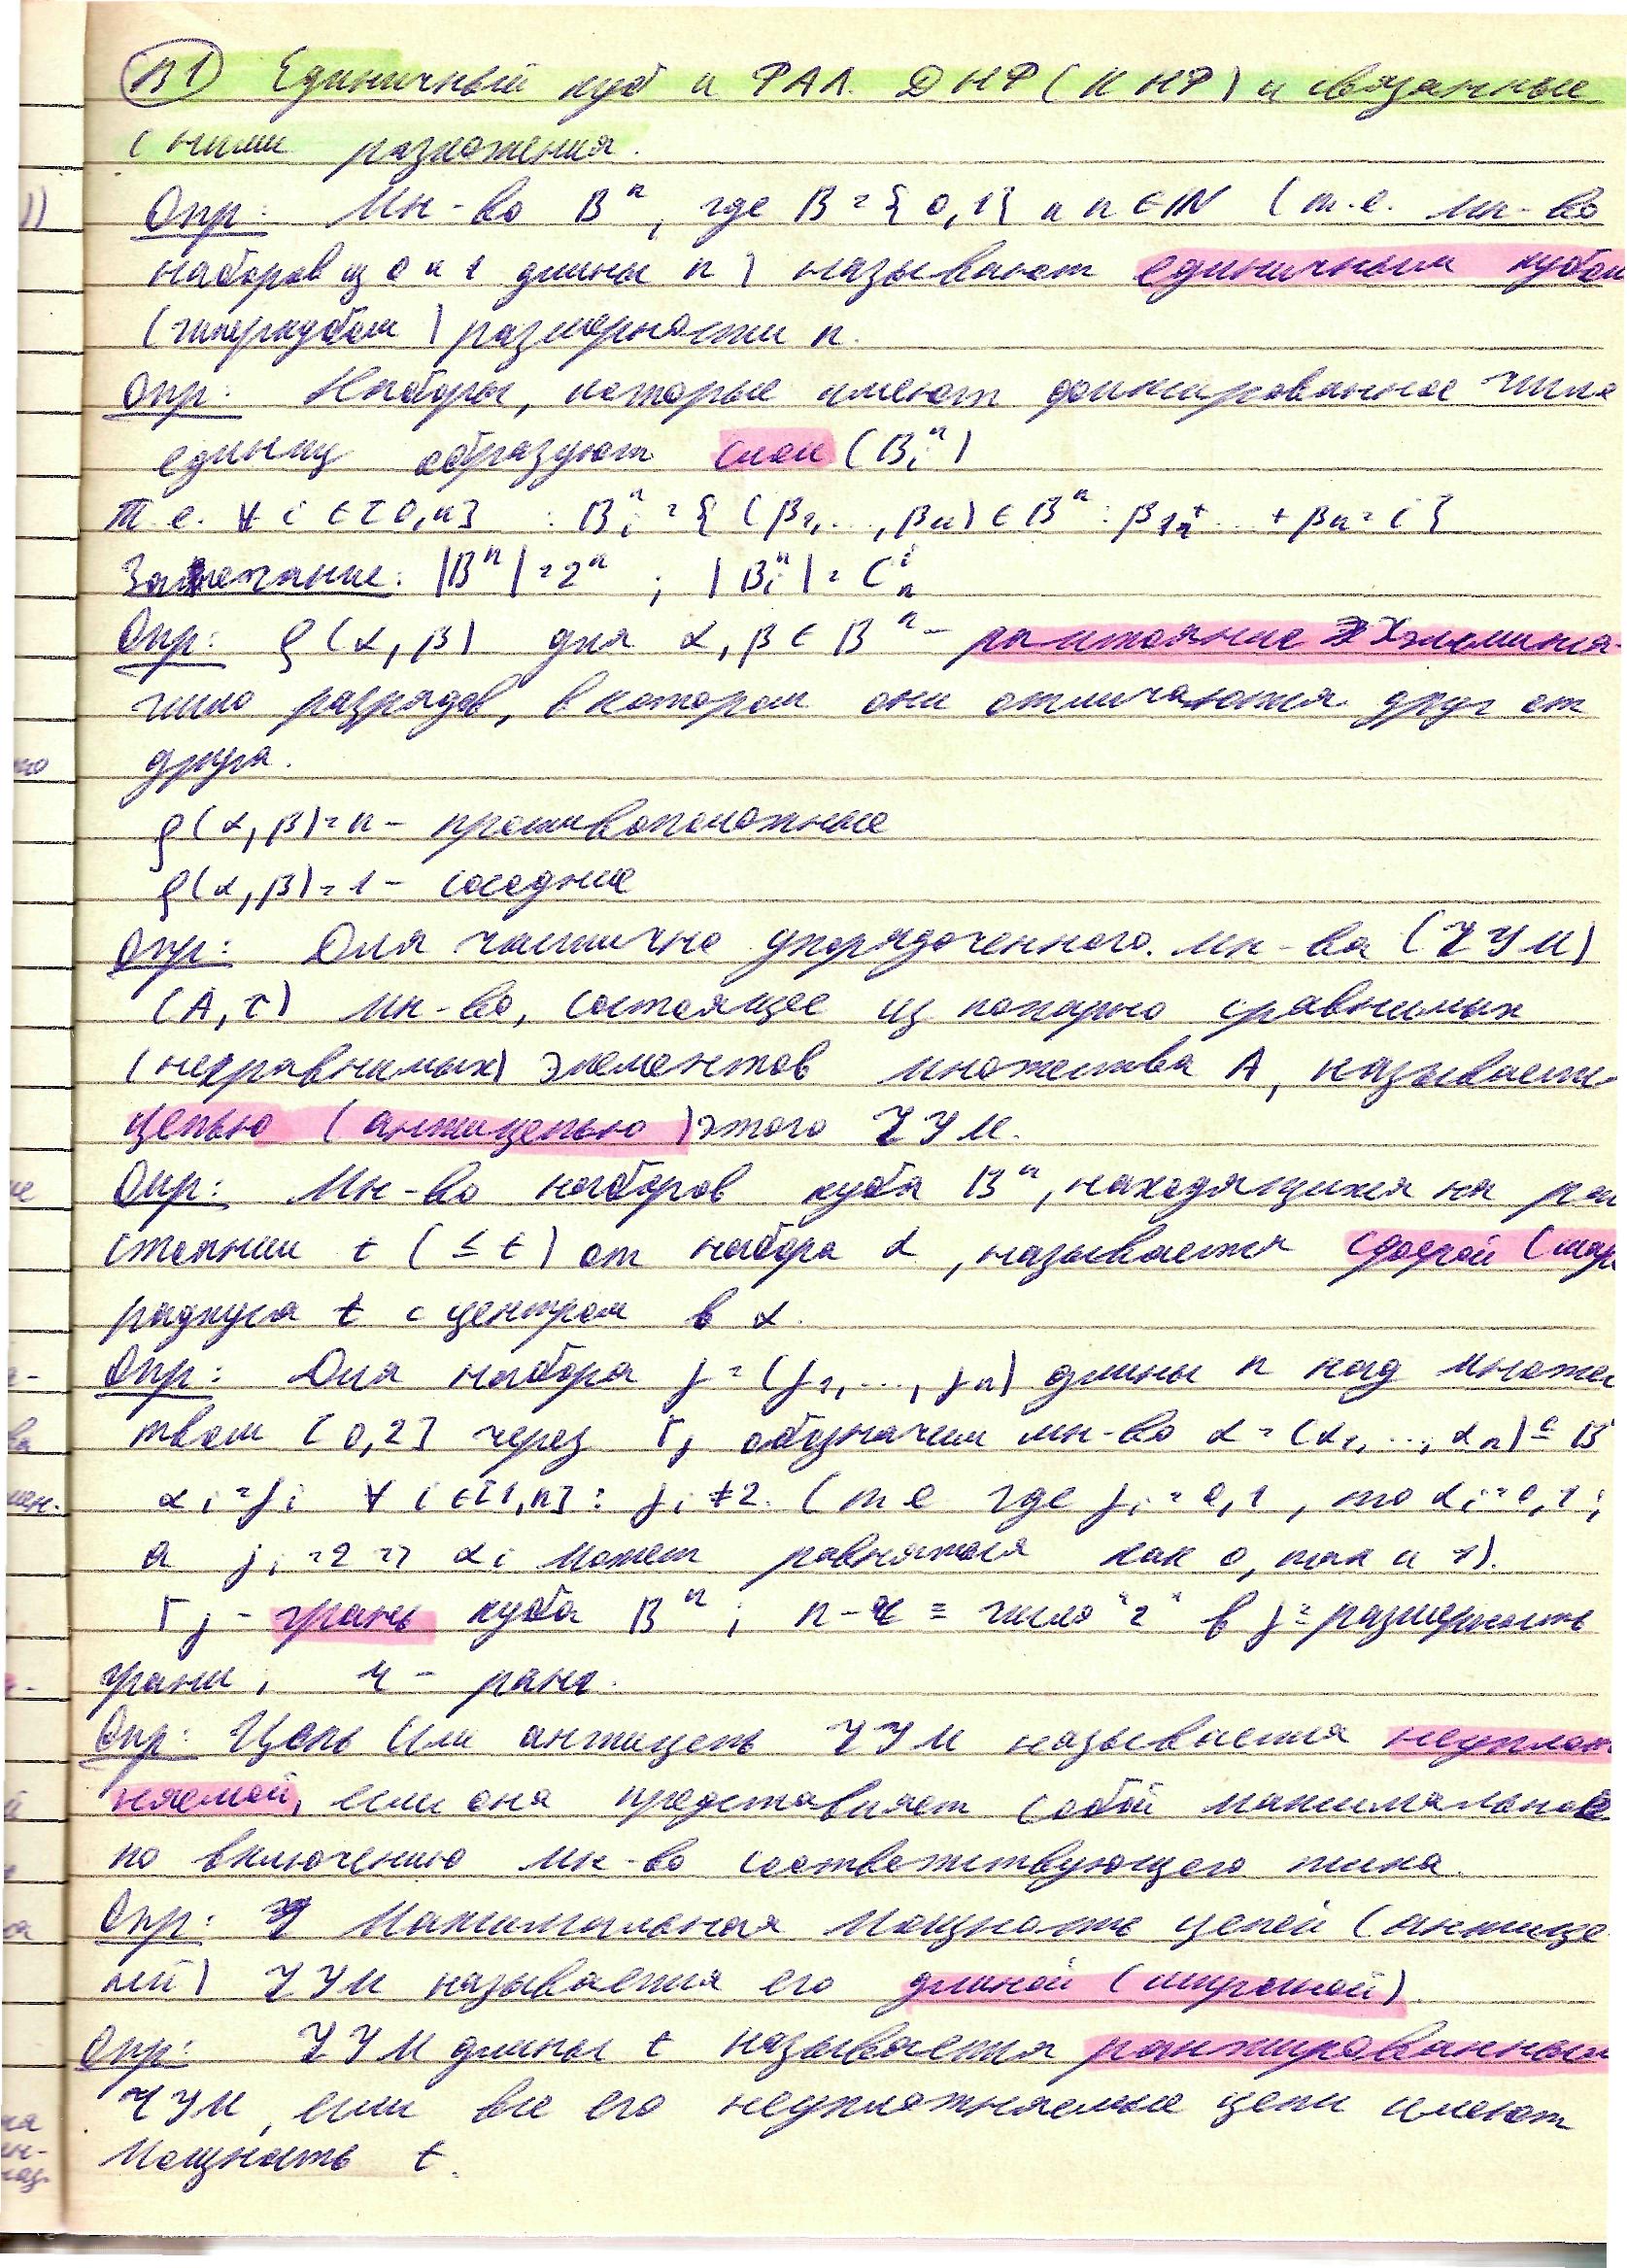 В1 Единичный куб и ФАЛ. ДНФ (КНФ) и связанные
с ними разложения.
Опр: Мн-во Bⁿ, где B = {0,1} и n ∈ ℕ (т.е. мн-во
наборов из 0 и 1 длины n) называют единичным кубом
(гиперкубом) размерности n.
Опр: Наборы, которые имеют фиксированное число
единиц образуют слои (Bᵢⁿ)
Т.е. ∀ i ∈ [0,n] : Bᵢⁿ = { (β₁,..., βₙ) ∈ Bⁿ : β₁+ ... + βₙ = i }
Замечание: |Bⁿ| = 2ⁿ ; |Bᵢⁿ| = Cₙⁱ
Опр: ρ(α, β) для α, β ∈ Bⁿ – расстояние Хэмминга –
число разрядов, в котором они отличаются друг от
друга.
ρ(α, β) = n – противоположные
ρ(α, β) = 1 – соседние
Опр: Для частично упорядоченного мн-ва (ЧУМ)
(A, τ) мн-во, состоящее из попарно сравнимых
(несравнимых) элементов множества A, называется
цепью (антицепью) этого ЧУМ.
Опр: Мн-во наборов куба Bⁿ, находящихся на рас
стоянии t (≤ t) от набора α, называется сферой (шар
радиуса t с центром в α.
Опр: Для набора γ = (γ₁, ..., γₙ) длины n над множес
твом [0,2] через Γγ обозначим мн-во α = (α₁, ..., αₙ) ∈ B
αᵢ = γᵢ ∀ i ∈ [1,n] : γᵢ ≠ 2. (т.е где γᵢ = 0,1, то αᵢ = 0,1;
а γᵢ = 2 => αᵢ может равняться как 0, так и 1).
Γγ – грань куба Bⁿ; n – r = число "2" в γ = размерность
грани, r – ранг.
Опр: Цепь или антицепь ЧУМ называется неуплот
няемой, если она представляет собой максимальное
по включению мн-во соответствующего типа.
Опр: Максимальная мощность цепей (антице
пей) ЧУМ называется его длиной (шириной).
Опр: ЧУМ длины t называется ранжированным
ЧУМ, если все его неуплотняемые цепи имеют
мощность t.